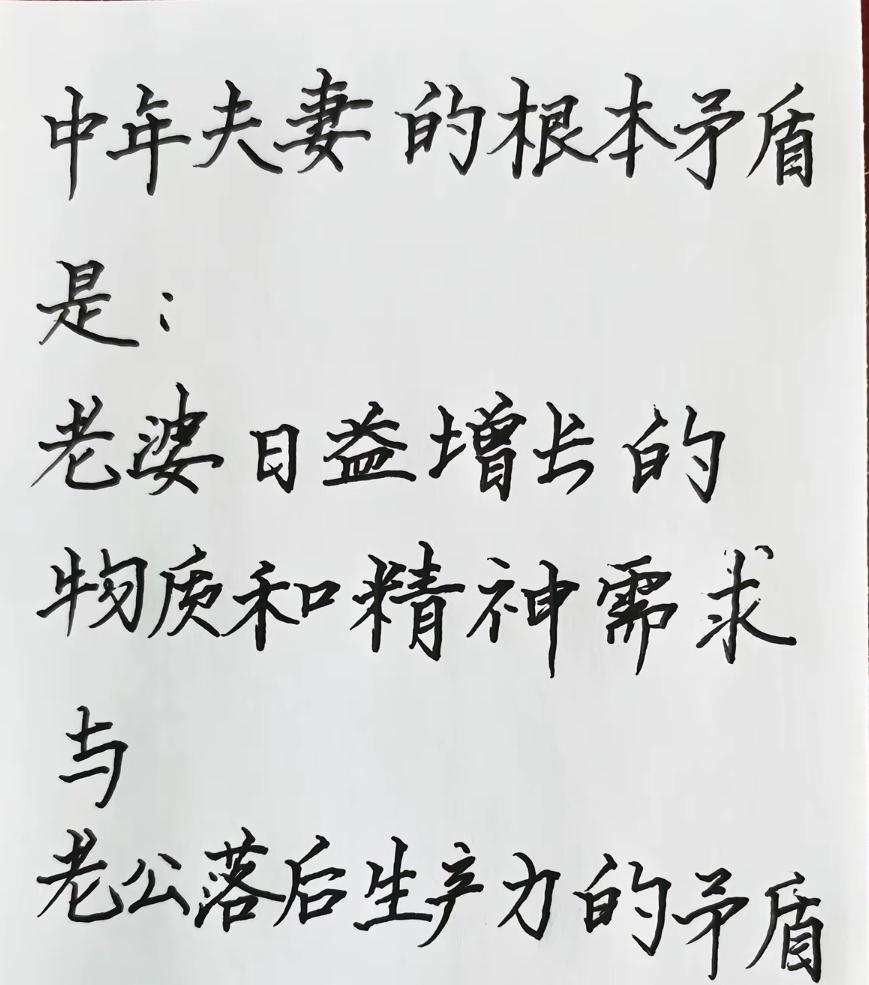 中年夫妻的根本矛盾
是：
老婆日益增长的
物质和精神需求
与
老公落后生产力的矛盾